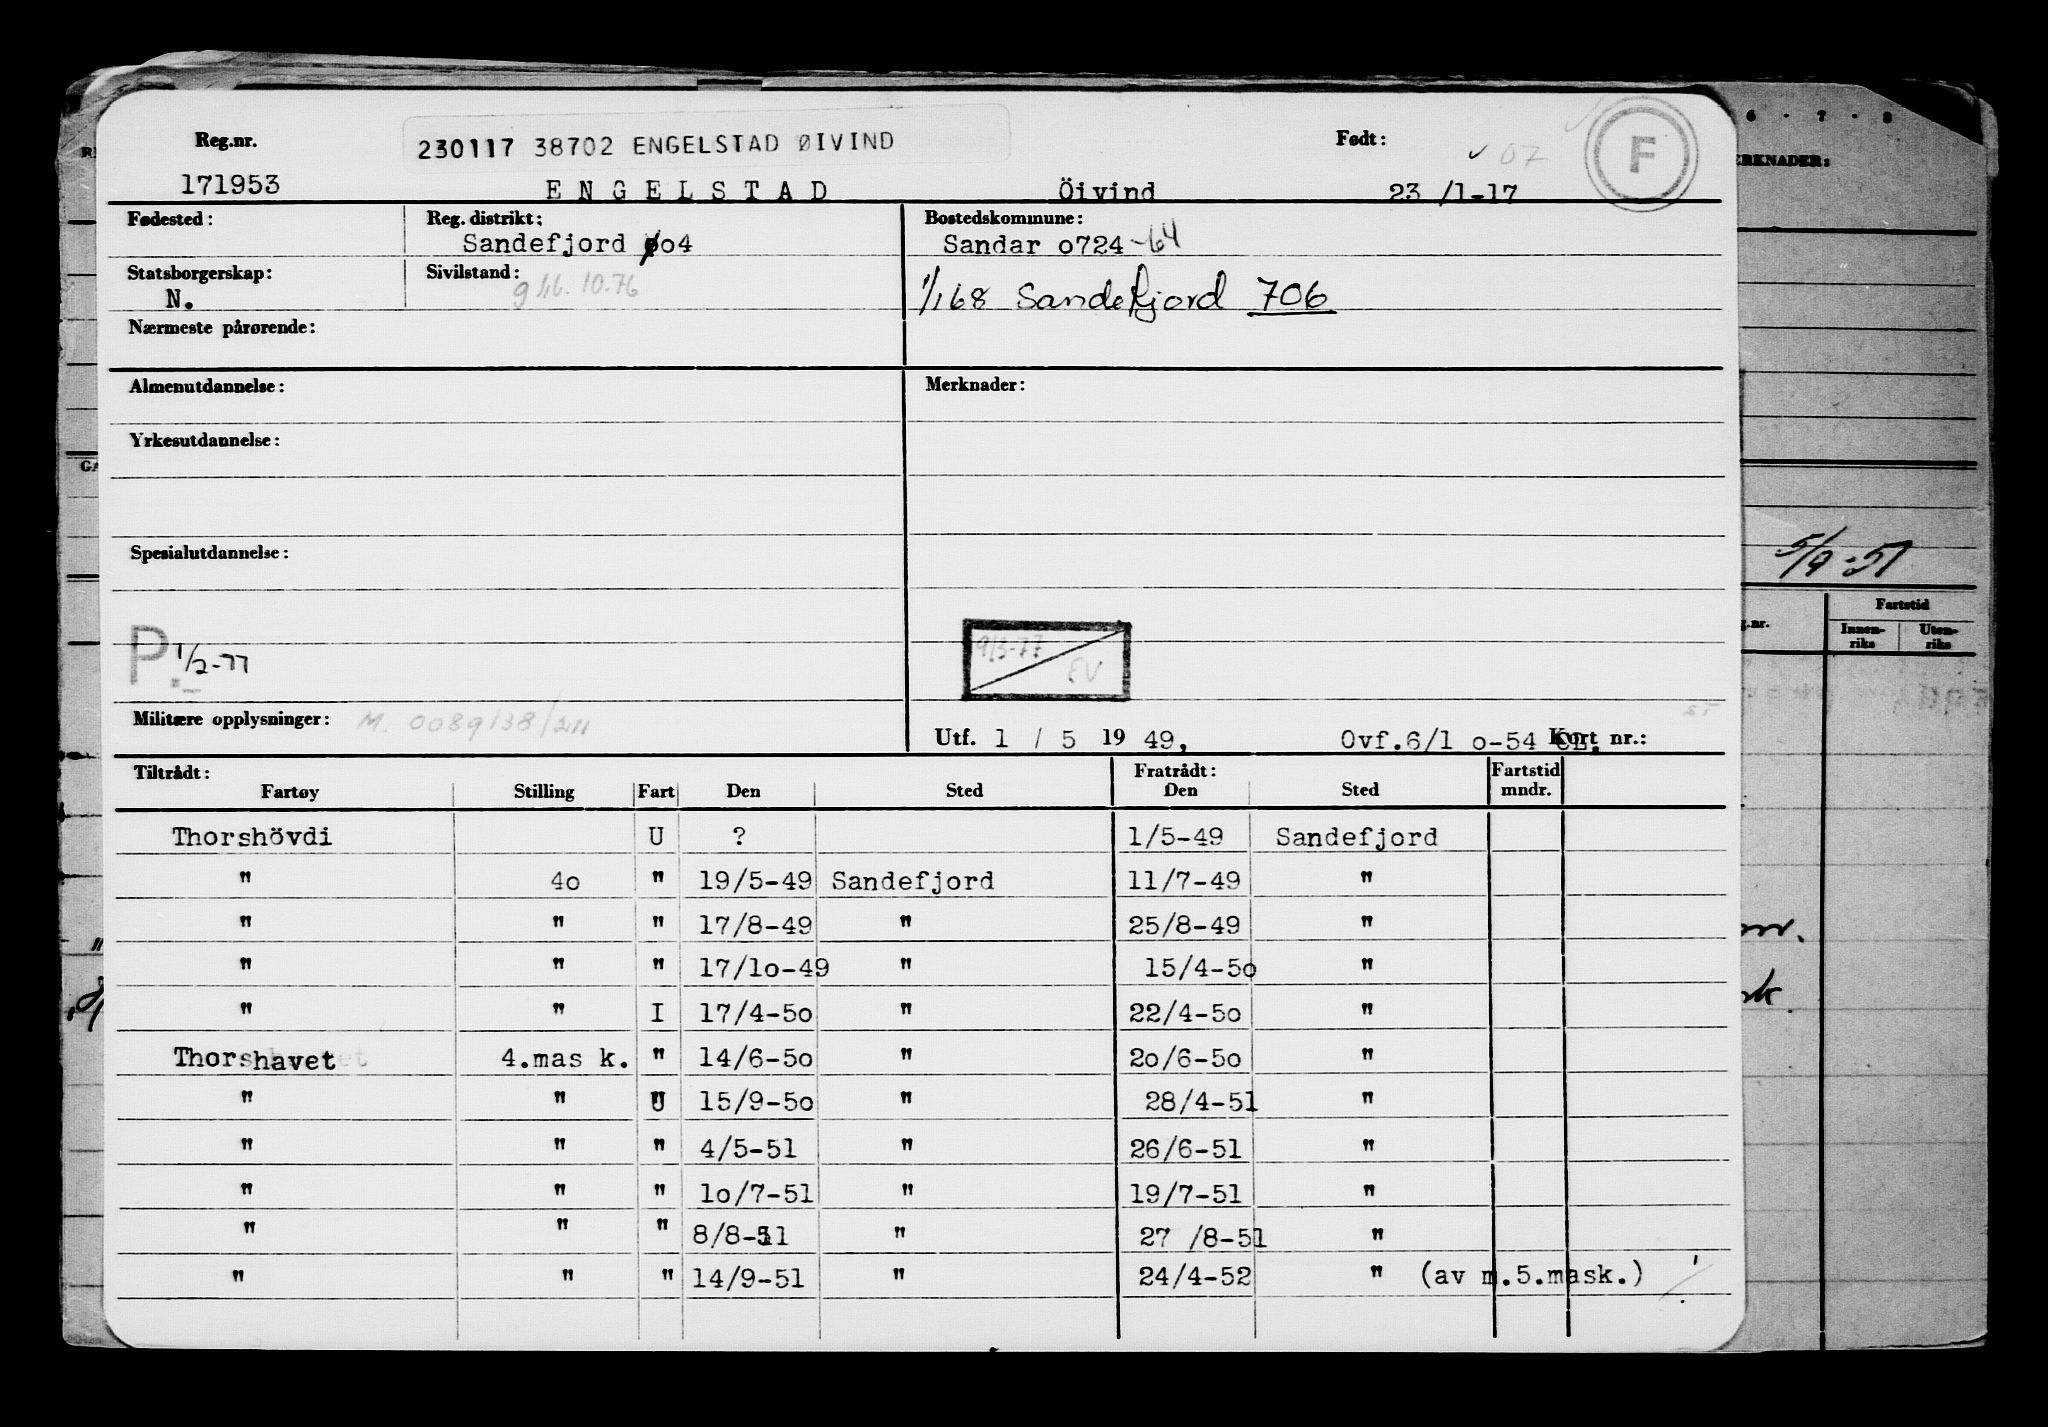 Reg.nr. 230117 38702 ENGELSTAD ØIVIND Født: 07 F
171953 ENGELSTAD Öivind 23 /1-17
Fødested: Reg. distrikt: Bostedskommune:
Sandefjord o4 Sandar o724-64
Statsborgerskap: Sivilstand:
N. 10.76 1/1 68 Sandefjord 706
Nærmeste pårørende:
Almenutdannelse: Merknader:
Yrkesutdannelse:
Spesialutdannelse:
P. 1/2-77 9/3-77 EV
Militære opplysninger: M. 0089/38/211
Utf. 1 / 5 19 49, Ovf.6/1 o-54 Kort nr.:
Tiltrådt: Fratrådt: Fartstid
Fartøy Stilling Fart Den Sted Den Sted mndr.
Thorshövdi U ? 1/5-49 Sandefjord
" 4o " 19/5-49 Sandefjord 11/7-49 "
" " " 17/8-49 " 25/8-49 "
" " " 17/1o-49 " 15/4-5o "
" " I 17/4-5o " 22/4-5o "
Thorshavet 4.mas k. " 14/6-5o " 2o/6-5o "
" " U 15/9-5o " 28/4-51 "
" " " 4/5-51 " 26/6-51 "
" " " 1o/7-51 " 19/7-51 "
" " " 8/8-51 " 27 /8-51 "
" " " 14/9-51 " 24/4-52 " (av m.5.mask.)
6 - 7 - 8
RKNADER:
5/9-51
Fartstid
Innen-riks Uten-riks